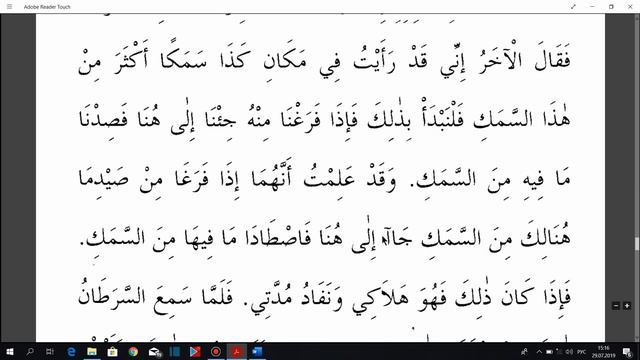 Adobe Reader Touch
فَقَالَ الْآخَرُ إِنِّي قَدْ رَأَيْتُ فِي مَكَانِ كَذَا سَمَكًا أَكْثَرَ مِنْ
هٰذَا السَّمَكِ فَلْنَبْدَأْ بِذٰلِكَ فَإِذَا فَرَغْنَا مِنْهُ جِئْنَا إِلٰى هُنَا فَصِدْنَا
مَا فِيهِ مِنَ السَّمَكِ. وَقَدْ عَلِمْتُ أَنَّهُمَا إِذَا فَرَغَا مِنْ صَيْدِمَا
هُنَالِكَ مِنَ السَّمَكِ جَاآ إِلٰى هُنَا فَاصْطَادَا مَا فِيهَا مِنَ السَّمَكِ.
فَإِذَا كَانَ ذٰلِكَ فَهُوَ هَلاَكِي وَنَفَادُ مُدَّتِي. فَلَمَّا سَمِعَ السَّرَطَانُ
РУС
15:16
29.07.2019